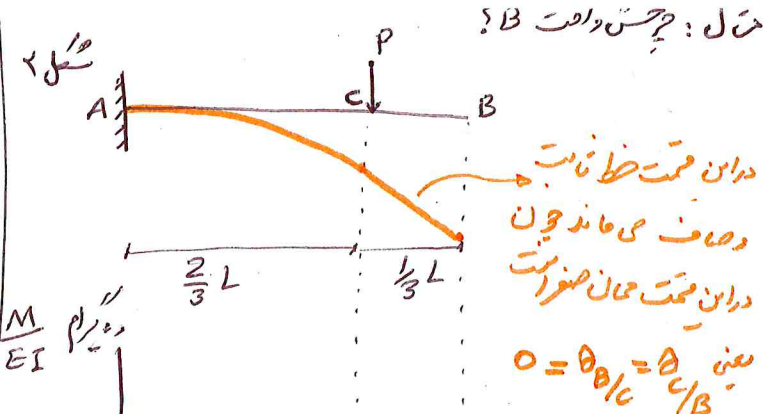 مثال: چرخش و افت B؟
شکل ۲
P
A
C
B
2/3 L
1/3 L
در این قسمت خط ثابت
و صاف می ماند چون
در این قسمت ممان صفر است
یعنی 0 = θB/C = θC/B
دیاگرام M/EI